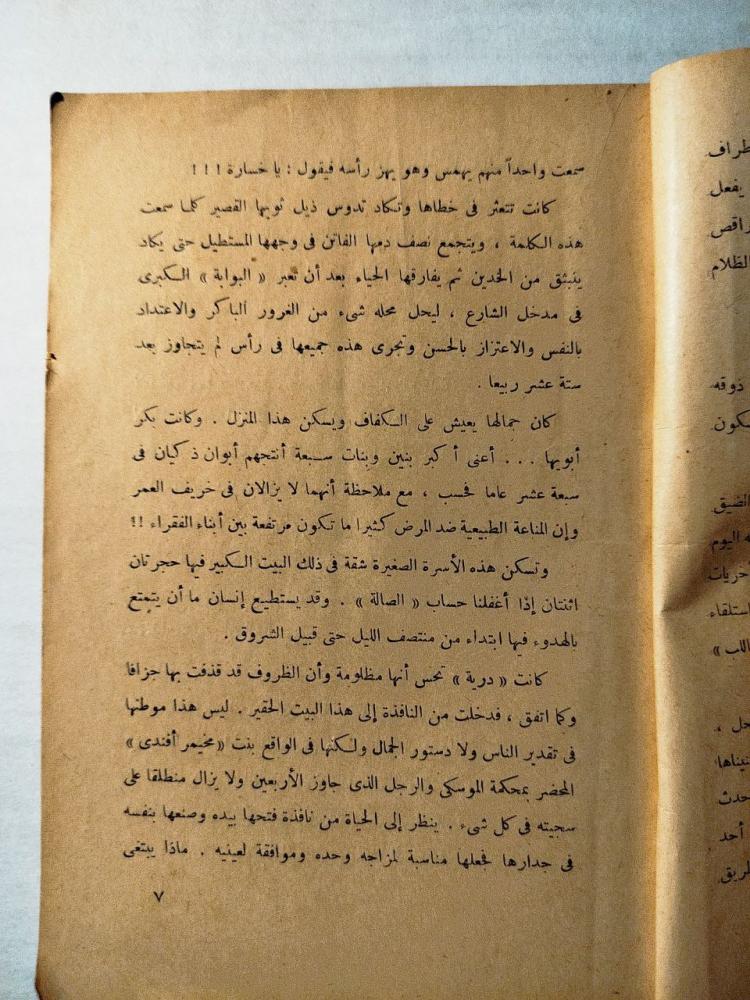 سمعت واحداً منهم يهمس وهو يهز رأسه فيقول : يا خسارة ! ! !
كانت تتعثر فى خطاها وتكاد تدوس ذيل ثوبها القصير كلما سمعت
هذه الكلمة ، ويتجمع نصف دمها الفاتن فى وجهها المستطيل حتى يكاد
ينبثق من الخدين ثم يفارقها الحياء بعد أن تعبر « البوابة » الكبرى
فى مدخل الشارع ، ليحل محله شىء من الغرور الباكر والاعتداد
بالنفس والاعتزاز بالحسن وتجرى هذه جميعها فى رأس لم يتجاوز بعد
ستة عشر ربيعا .
كان جمالها يعيش على الكفاف ويسكن هذا المنزل . وكانت بكر
أبويها . . . أعنى أكبر بنين وبنات سبعة أنتجهم أبوان ذكيان فى
سبعة عشر عاما فحسب ، مع ملاحظة أنهما لا يزالان فى خريف العمر
وإن المناعة الطبيعية ضد المرض كثيرا ما تكون مرتفعة بين أبناء الفقراء !!
وتسكن هذه الأسرة الصغيرة شقة فى ذلك البيت الكبير فيها حجرتان
اثنتان إذا أغفلنا حساب « الصالة » . وقد يستطيع إنسان ما أن يتمتع
بالهدوء فيها ابتداء من منتصف الليل حتى قبيل الشروق .
كانت « درية » تحس أنها مظلومة وأن الظروف قد قذفت بها جزافا
وكما اتفق ، فدخلت من النافذة إلى هذا البيت الحقير . ليس هذا موطنها
فى تقدير الناس ولا دستور الجمال ولكنها فى الواقع بنت « مخيمر أفندى »
المحضر بمحكمة الموسكى والرجل الذى جاوز الأربعين ولا يزال منطلقا على
سجيته فى كل شىء . ينظر إلى الحياة من نافذة فتحها بيده وصنعها بنفسه
فى جدارها فجعلها مناسبة لمزاجه وحده وموافقة لعينيه . ماذا يبتغى
٧
طراف
يفعل
راقص
الظلام
ذوقه
الضيق
اليوم
خريات
استلقاء
اللب »
حل ،
حدث
أحد